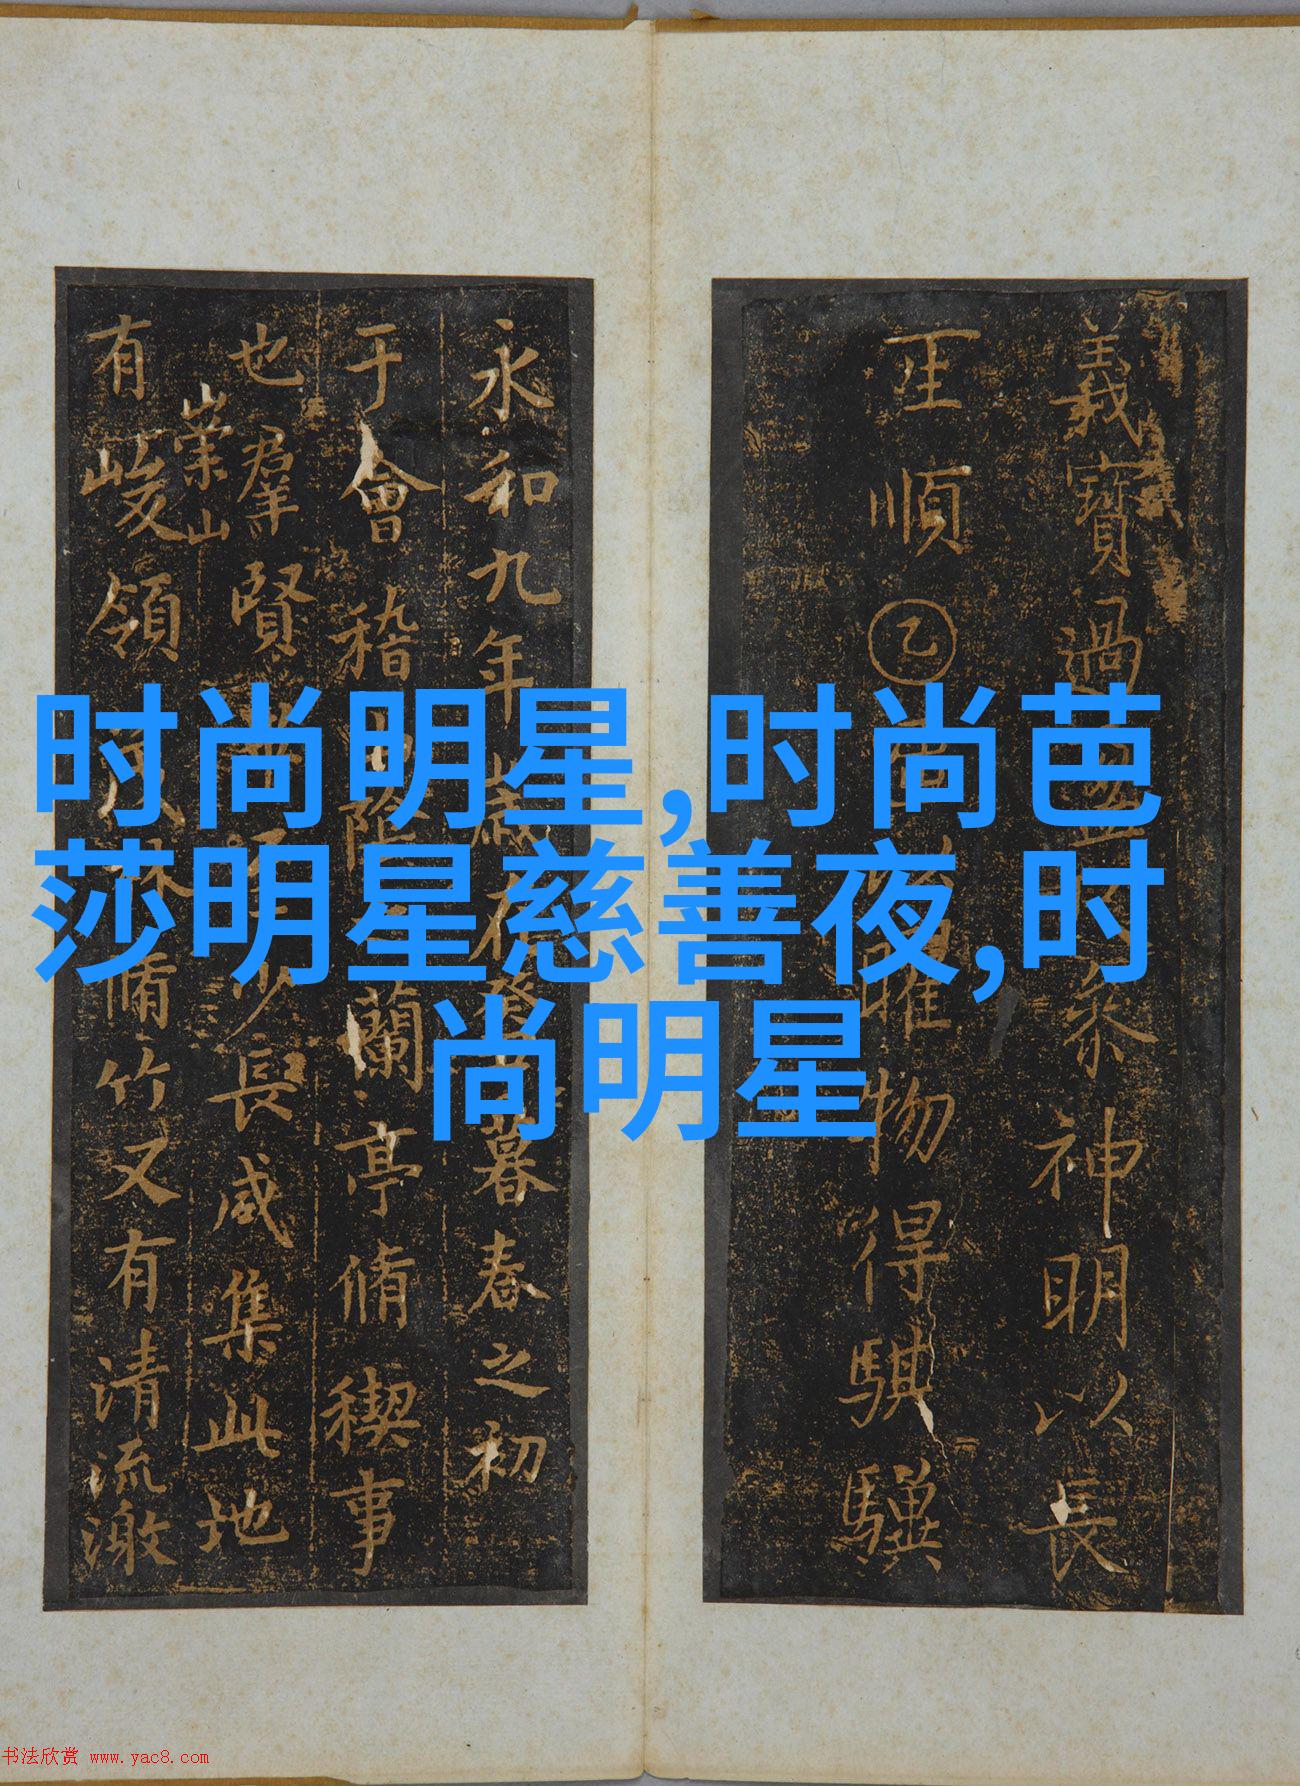 时尚明星,时尚芭
莎明星慈善夜,时
尚明星
義寶過神明以長
順乙曜物得騏驥
永和九年歲在癸丑暮春之初
于會稽山陰之蘭亭脩禊事
也羣賢畢至少長咸集此地
崇山
有峻領茂林脩竹又有清流激
书法欣赏 www.yac8.com